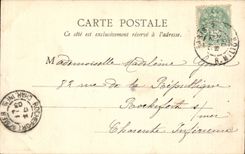 CARTE POSTALE
Ce côté est exclusivement réservé à l'adresse.
Mademoiselle Madeleine
82 rue de la République
Rochefort s/ mer
Charente Inférieure